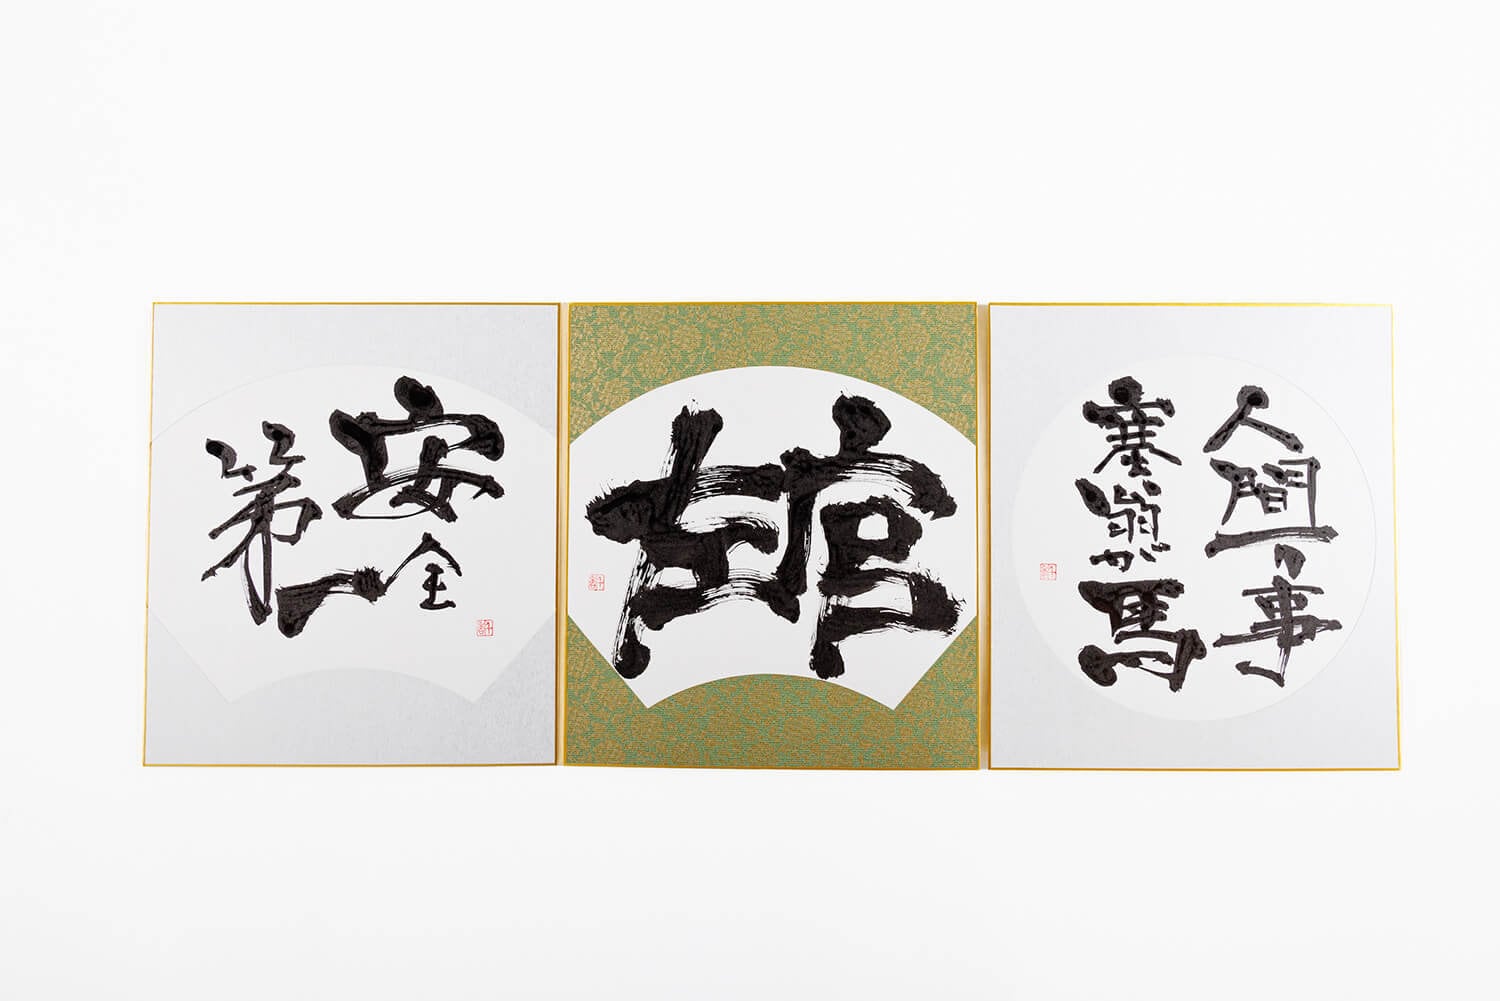 安全
第一
人間万事
塞翁が馬